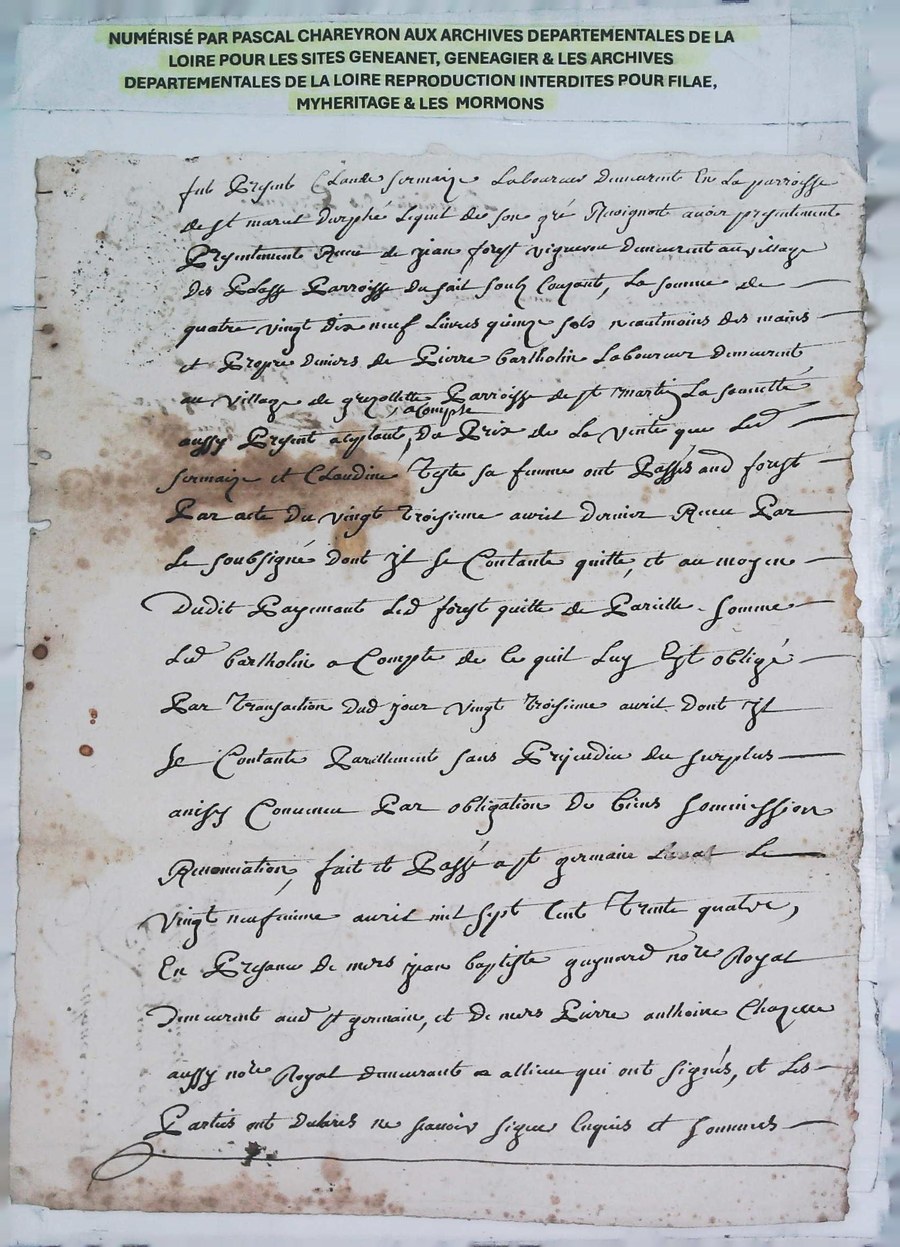 NUMÉRISÉ PAR PASCAL CHAREYRON AUX ARCHIVES DEPARTEMENTALES DE LA
LOIRE POUR LES SITES GENEANET, GENEAGIER & LES ARCHIVES
DEPARTEMENTALES DE LA LOIRE REPRODUCTION INTERDITES POUR FILAE,
MYHERITAGE & LES MORMONS
fut Present Claude sermaize Laboureur demeurent En La parroisse
de st marcel Durphé Lequel de son gré avoir presentement
Presentement Receu de jean forest vigneron demeurent au village
Des Parroisse du fait soulz Couzant, La somme de
quatre vingt dix neuf Livres quinze sols neautmoins des mains
et Propre deniers de Pierre bartholin Laboureur demeurent
au village de grezollette Parroisse de st martin La sauveté
acompte
aussy Present , Du Prix de La vente que Led
sermaize et Claudine Teste sa femme ont Passés aud forest
Par acte du vingt troisieme avril dernier Receu Par
Le soubsigné dont jl se Contante quitte, et au moyen
Dudit Payement Led forest quitte de Pareille somme
Led bartholin a Compte de ce quil Luy Est obligé
Par Transaction dud jour vingt troisieme avril dont jl
se Contante Pareillement sans Prejudice du surplus
ainsy Convenu Par obligation de biens soumission
Renonciation, fait et Passé a st germain Laval Le
vingt neufvieme avril mil sept Cent Trente quatre,
En Presance de mers jean baptiste guynard nore Royal
Demeurent aud st germain, et de mers Pierre anthoine Chazelle
aussy nore Royal demeurant a allieu qui ont signés, et Les
Parties ont declarés ne scavoir signer Enquis et sommés